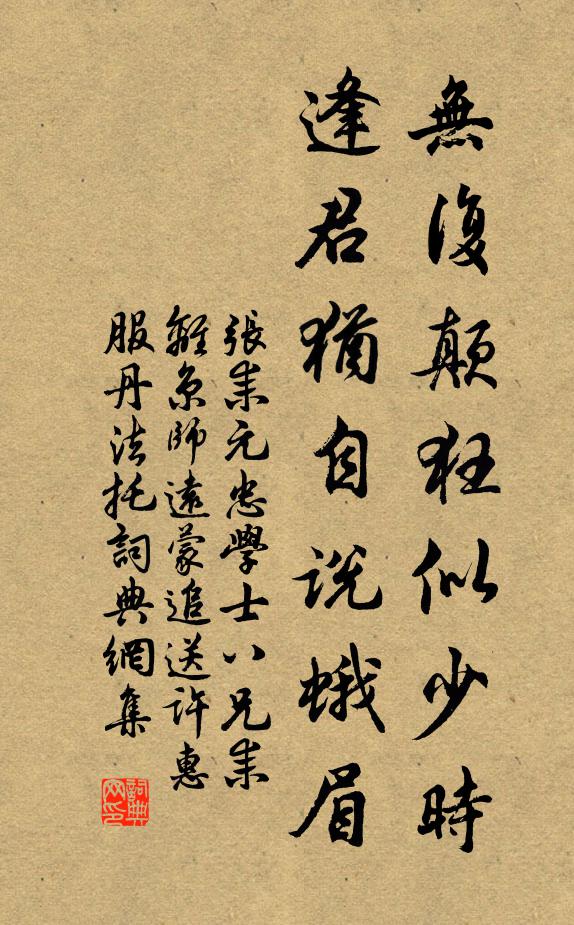 無復顛狂似少時
逢君猶自說蛾眉
張耒元忠學士八兄耒
離京師遠蒙追送許惠
服丹法托詞典網集
詞典
网印